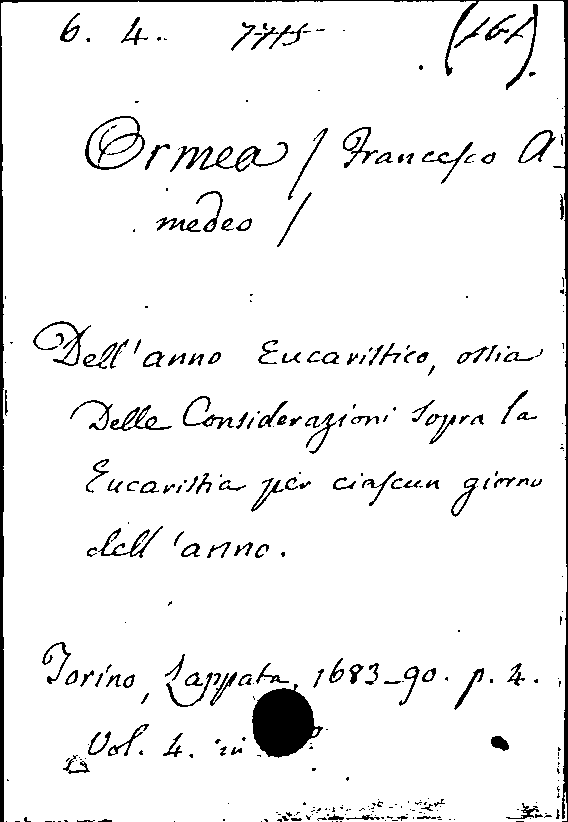 6. 4. 7715 (161).
Ormea / Francesco A-
medeo /
Dell'anno Eucaristico, ossia
Delle Considerazioni sopra la
Eucaristia per ciascun giorno
dell'anno.
Torino, Zappata, 1683-90. p. 4.
Vol. 4. in